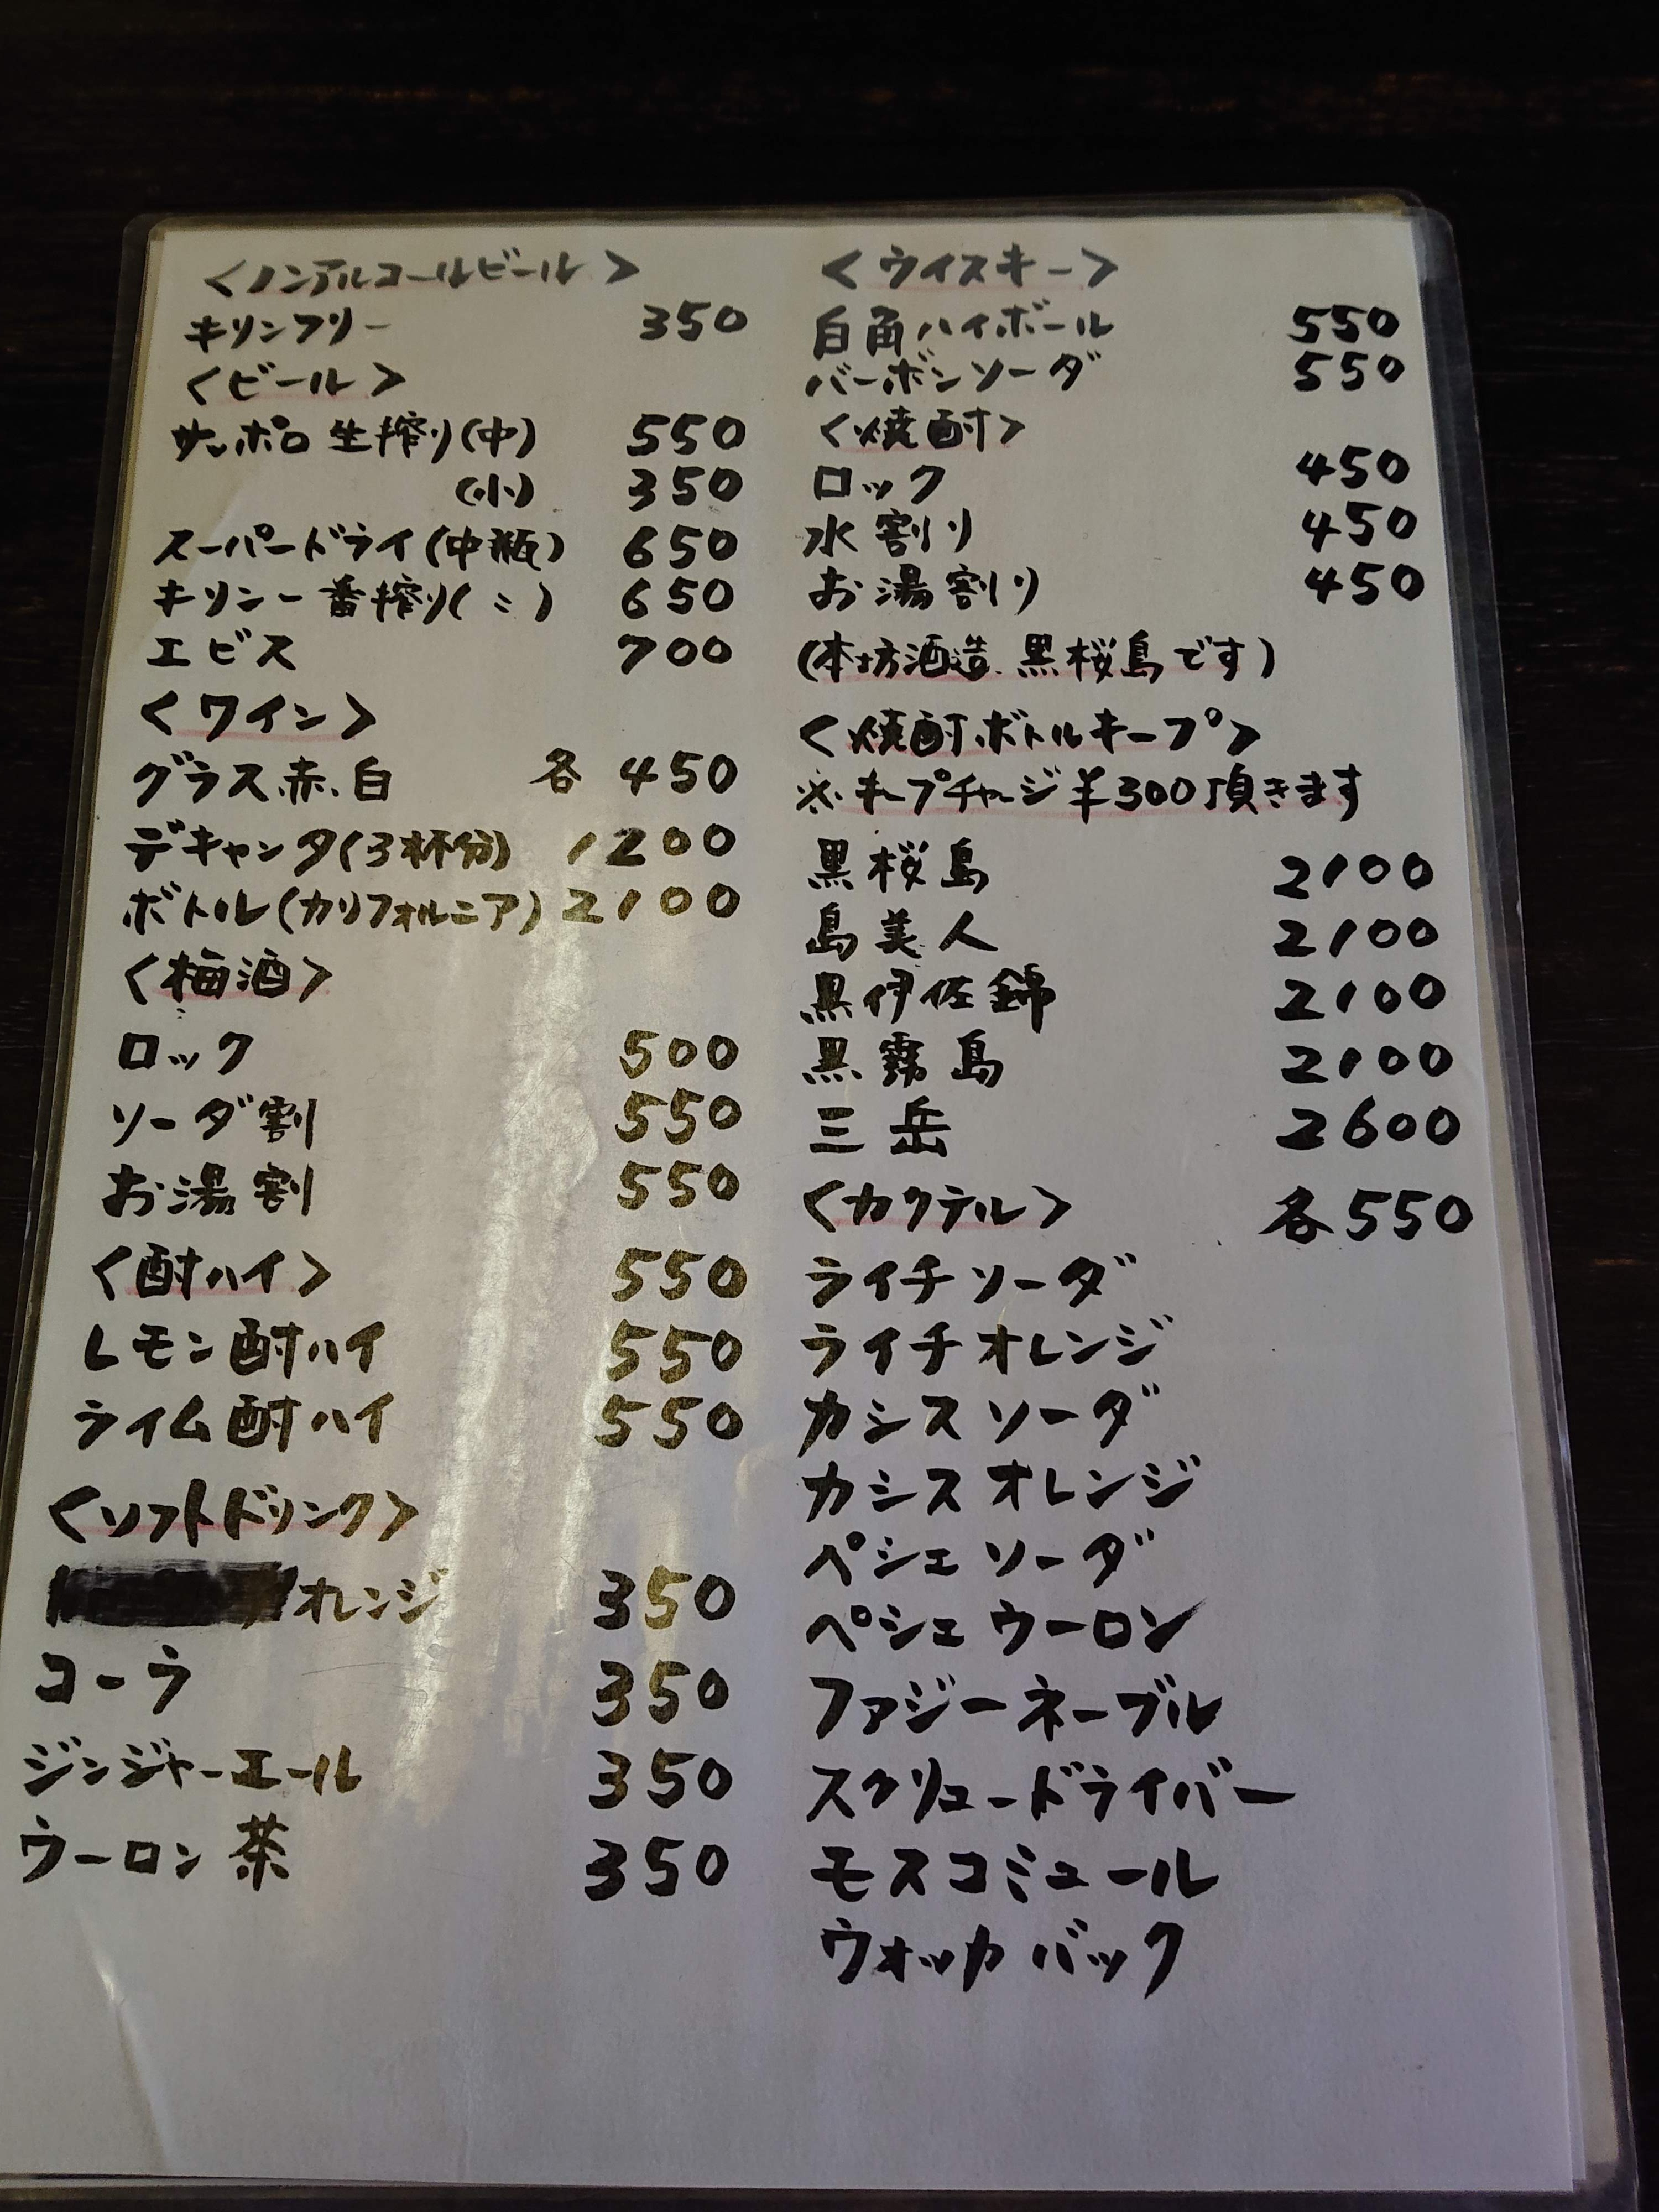 <ノンアルコールビール>
キリンフリー 350
<ビール>
サッポロ生搾り(中) 550
(小) 350
スーパードライ(中瓶) 650
キリン一番搾り(〃) 650
エビス 700
<ワイン>
グラス赤、白 各 450
デキャンタ(3杯分) 1200
ボトル(カリフォルニア) 2100
<梅酒>
ロック 500
ソーダ割 550
お湯割 550
<酎ハイ> 550
レモン酎ハイ 550
ライム酎ハイ 550
<ソフトドリンク>
オレンジ 350
コーラ 350
ジンジャーエール 350
ウーロン茶 350
<ウイスキー>
白角ハイボール 550
バーボンソーダ 550
<焼酎>
ロック 450
水割り 450
お湯割り 450
(本坊酒造、黒桜島です)
<焼酎ボトルキープ>
※キープチャージ¥300頂きます
黒桜島 2100
島美人 2100
黒伊佐錦 2100
黒霧島 2100
三岳 2600
<カクテル> 各550
ライチソーダ
ライチオレンジ
カシスソーダ
カシスオレンジ
ペシェソーダ
ペシェウーロン
ファジーネーブル
スクリュードライバー
モスコミュール
ウォッカバック